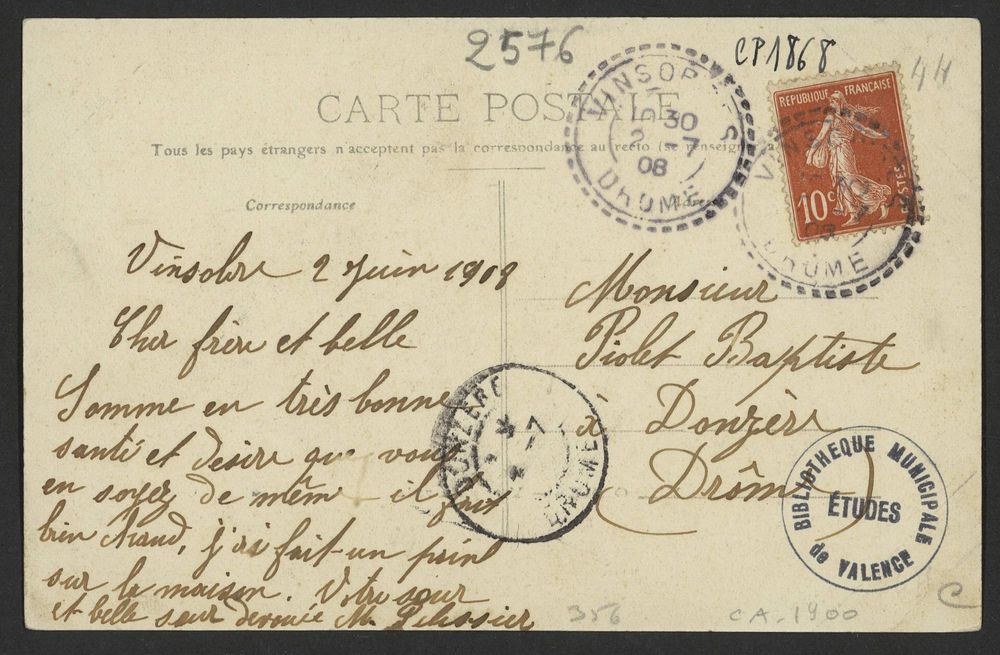 2576
CP1868
44
CARTE POSTALE
Tous les pays étrangers n'acceptent pas la correspondance au recto (se renseigner à la
Correspondance
VINSOBRES
30
2 -7
08
DROME
REPUBLIQUE FRANÇAISE
POSTES
10c
DROME
Vinsobre 2 Juin 1908
Cher frère et belle
Somme en très bonne
santé et desire que vous
en soyez de même - il fais
bien chaud, j'ai fait un point
sur la maison. Votre sœur
et belle sœur devouée M. Pelissier
Monsieur
Piolet Baptiste
à Donzère
(Drôme)
DONZERE
DROME
BIBLIOTHEQUE MUNICIPALE
ÉTUDES
de VALENCE
C
356
CA. 1900